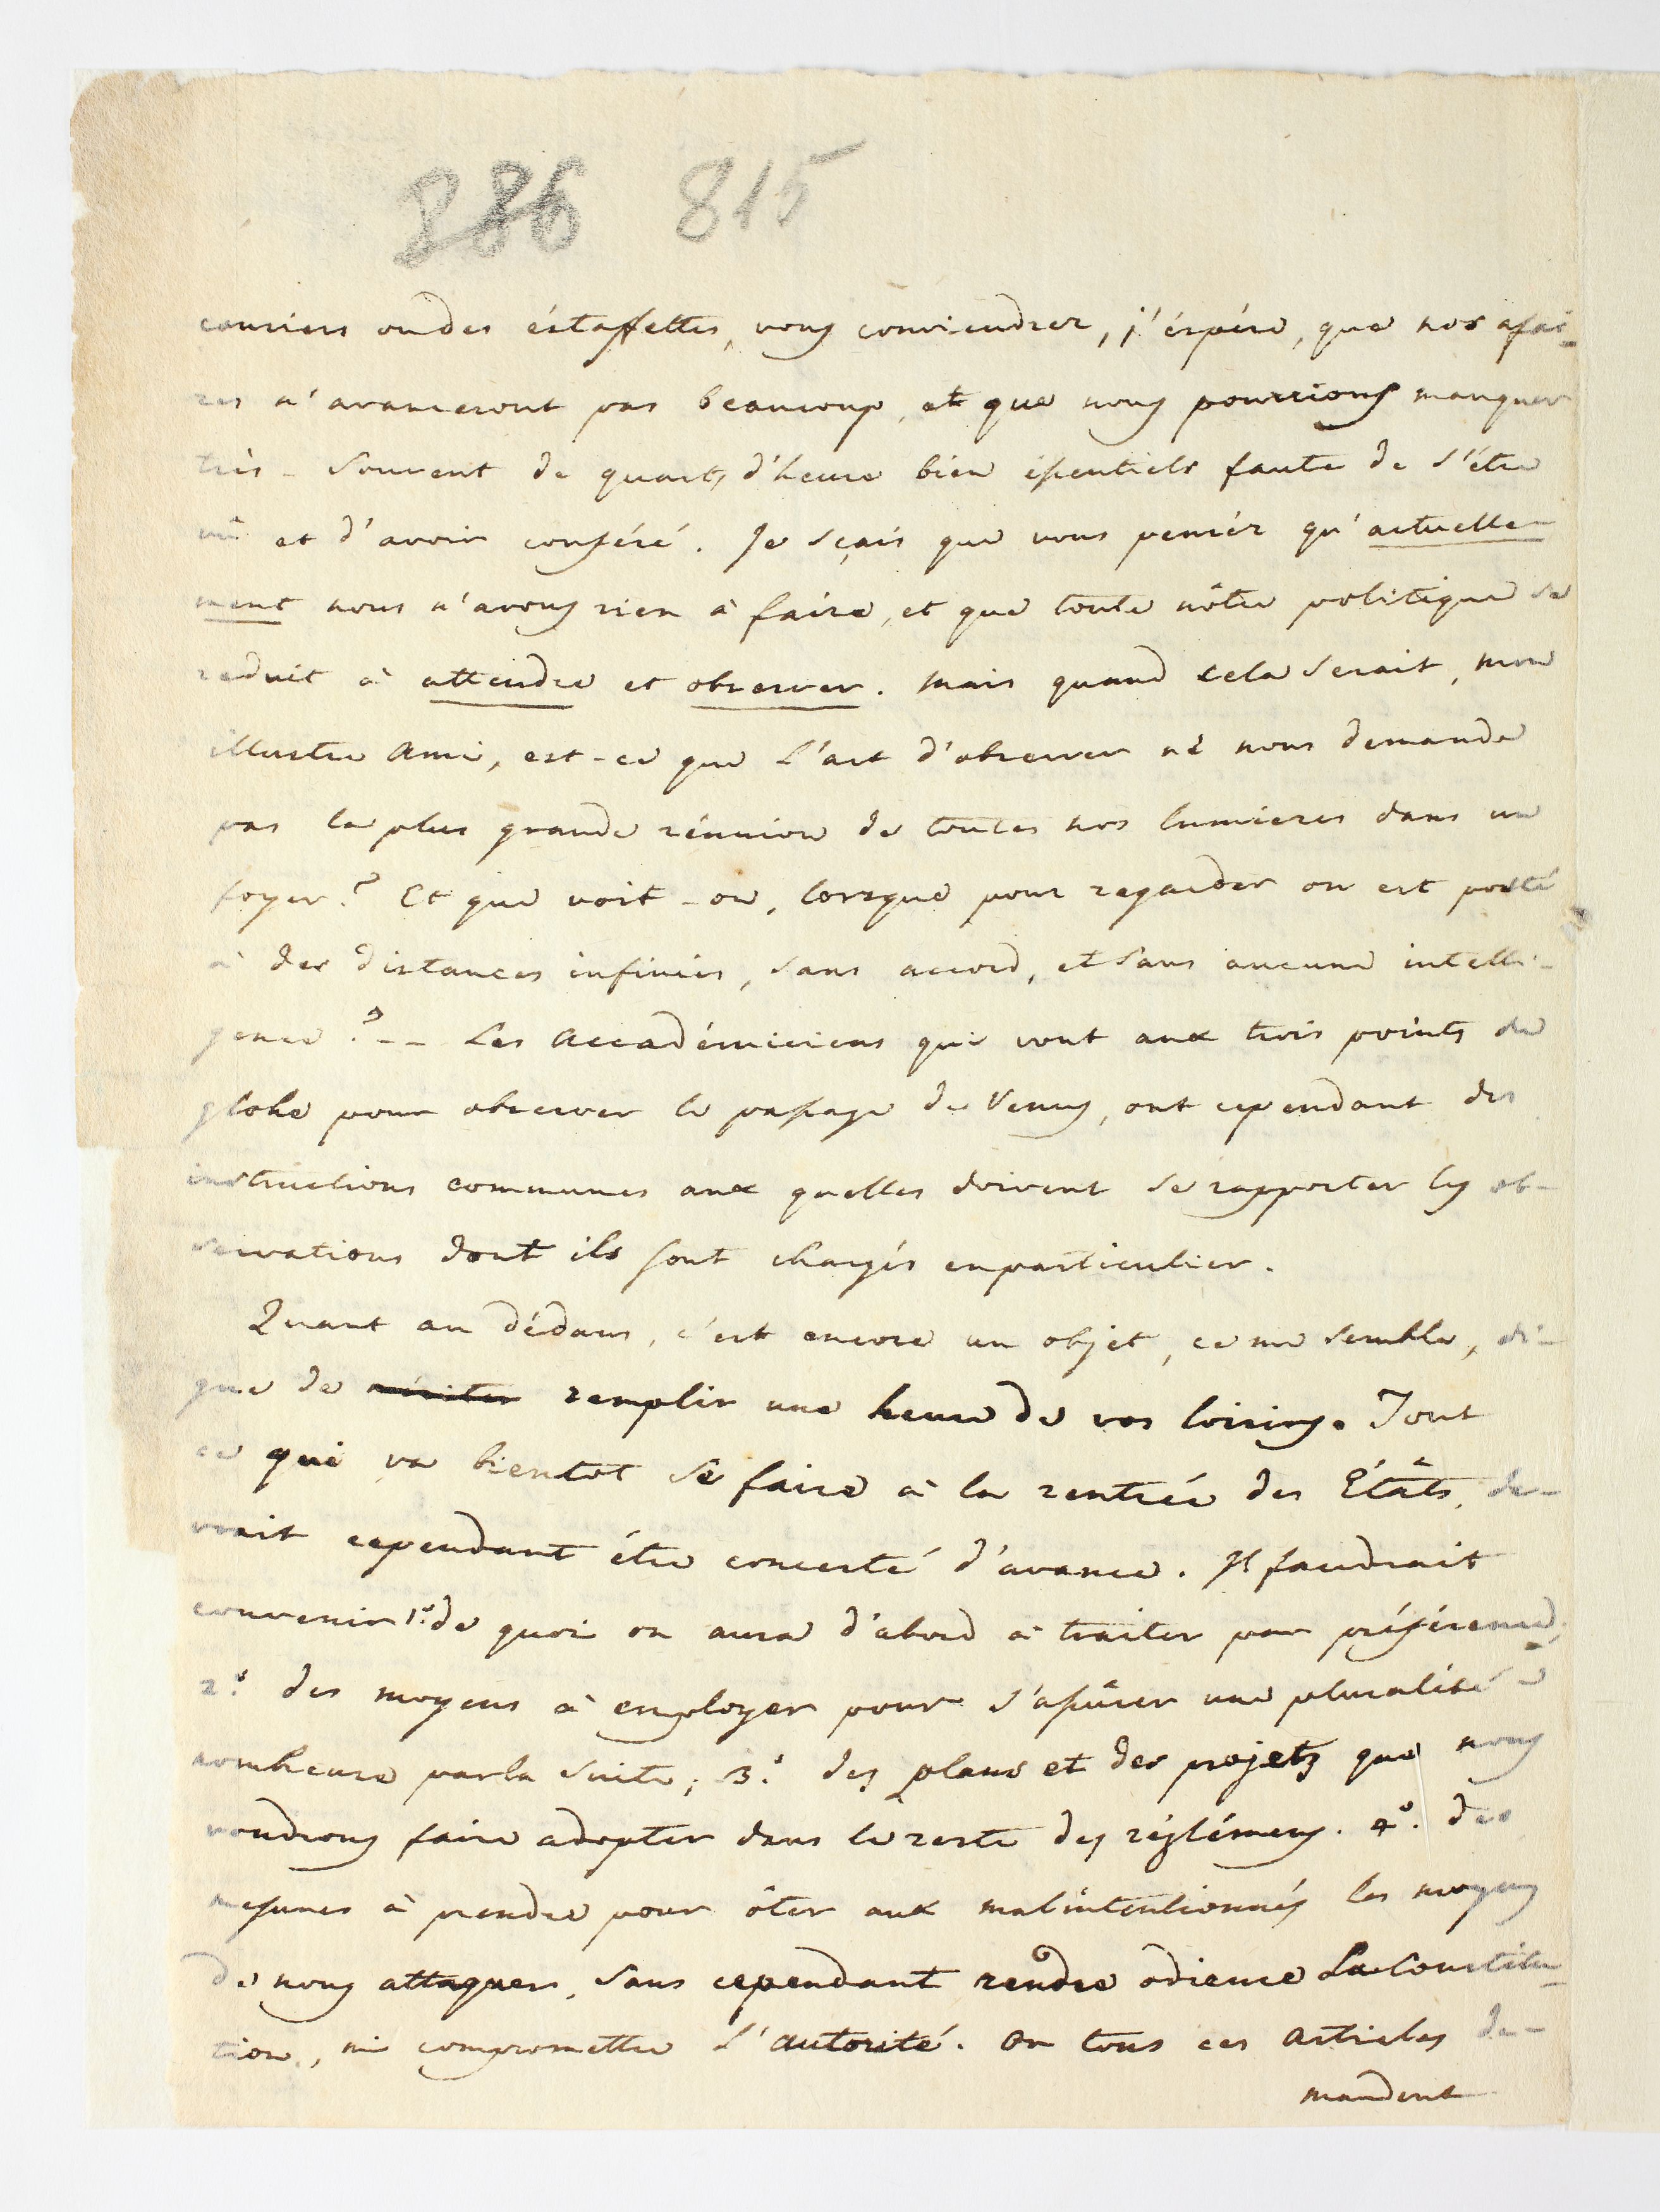 886 815
couriers ou des éstaffettes, vous conviendrez, j'éspére, que nos afai-
res n'avanceront pas beaucoup, et que nous pourrions manquer
très-souvent de quarts d'heure bien éssentiels faute de s'être
vû et d'avoir conféré. Je sçais que vous pensér qu'actuelle-
ment nous n'avons rien à faire, et que toute nôtre politique se
reduit à attendre et observer. Mais quand cela serait, mon
illustre Ami, est-ce que l'art d'observer ne nous demande
pas la plus grande réunion de toutes nos lumieres dans un
foyer? Et que voit-on, lorsque pour regarder on est posté
à des distances infinies, sans accord, et sans aucune intelli-
gence? -- Les Accadémiciens qui vont aux trois points du
globe pour observer le passage de Venus, ont cependant des
instructions communes aux quelles doivent se rapporter les ob-
servations dont ils sont chargés en particulier.
Quant au dédans, c'est encore un objet, ce me semble, di-
gne de mériter remplir une heure de vos loisirs. Tout
ce qui va bientot se faire à la rentrée des Étâts, de-
vrait cependant étre concerté d'avance. Il faudrait
convenir 1º. de quoi on aura d'abord à traiter par préférence;
2º. des moyens à employer pour s'assûrer une pluralité
nombreuse par la suite; 3º. des plans et des projets que nous
voudrons faire adopter dans le reste des réglémens. 4º. des
mesures à prendre pour ôter aux malintentionnés les moyens
de nous attaquer, sans cependant rendre odieuse la Constitu-
tion, ni compromettre l'autorité. Or tous ces Articles de-
mandent